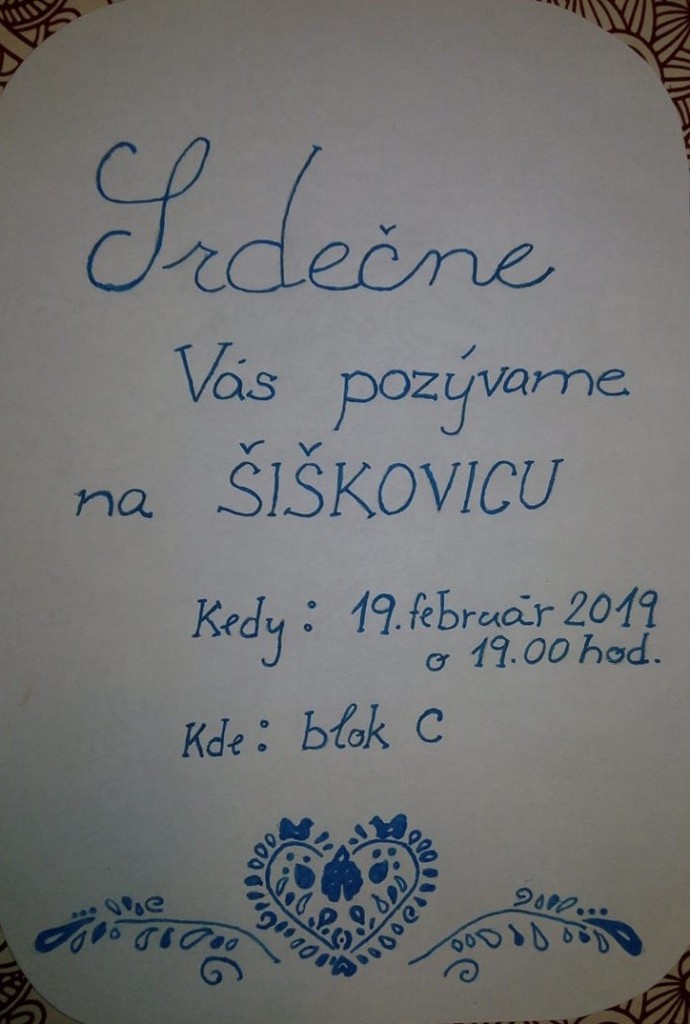 Srdečne
Vás pozývame
na ŠIŠKOVICU
Kedy: 19. február 2019
o 19.00 hod.
Kde: blok C